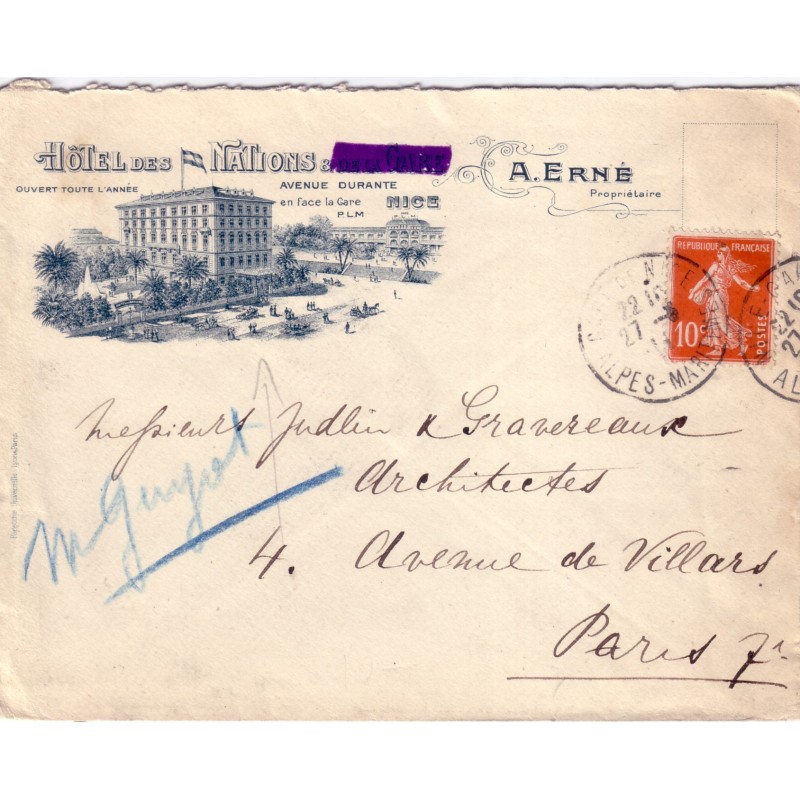 HÔTEL DES NATIONS & DE LA GARE
OUVERT TOUTE L'ANNÉE
AVENUE DURANTE
en face la Gare NICE
P.L.M
A. ERNÉ
Propriétaire
REPUBLIQUE FRANÇAISE
10
POSTES
22
27
ALPES-MARITIMES
27
AL
Messieurs Judlin & Gravereaux
Architectes
4. Avenue de Villars
Paris 7e
M Guyot